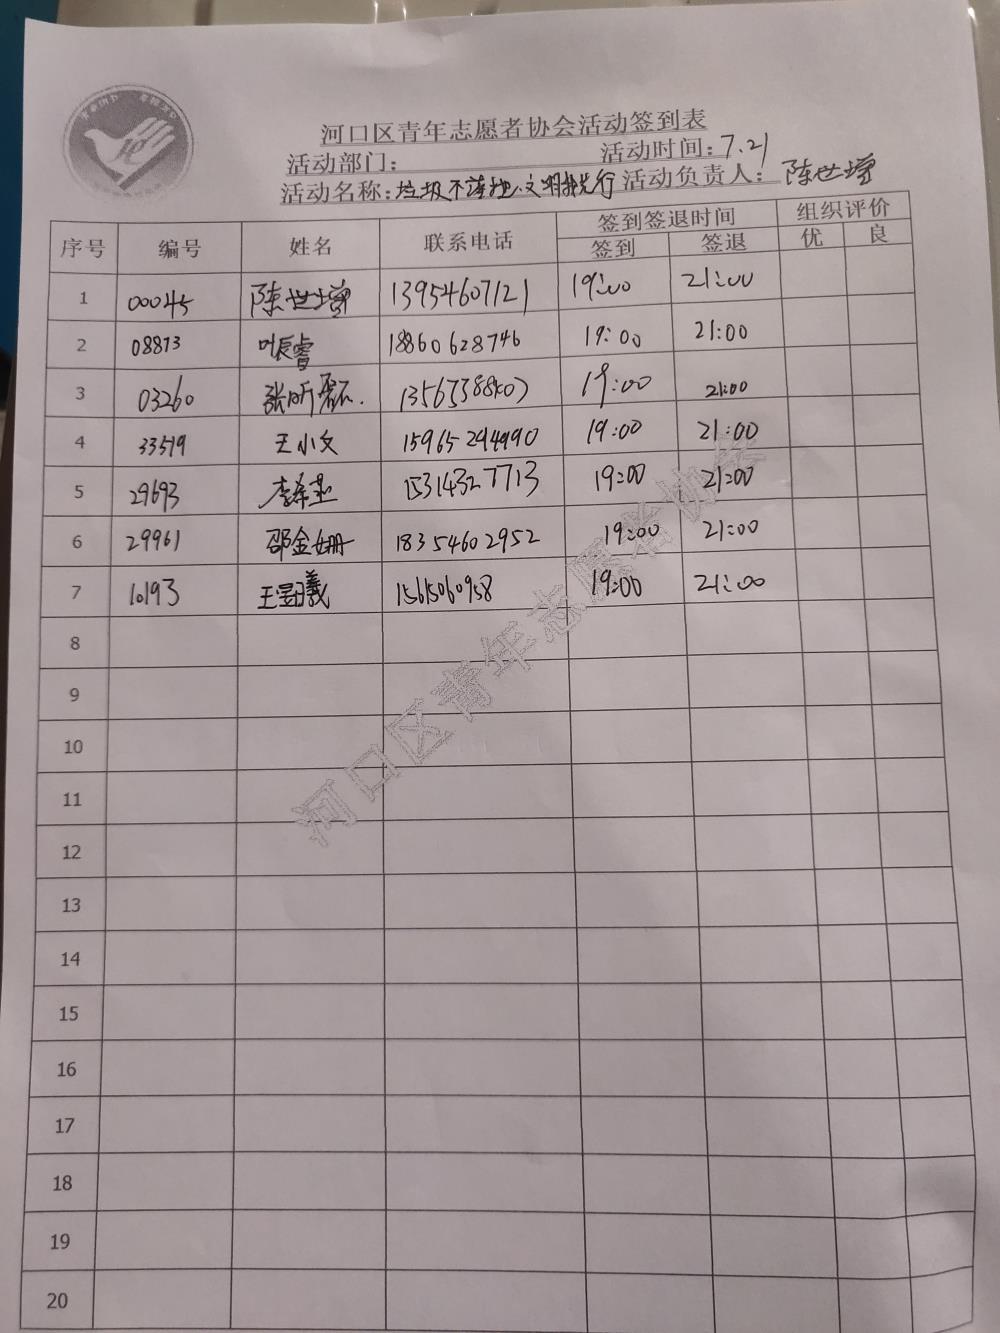 河口区青年志愿者协会活动签到表
活动部门： 活动时间：7.21
活动名称：垃圾不落地，文明我先行 活动负责人：陈世增
序号 编号 姓名 联系电话 签到签退时间 组织评价
签到 签退 优 良
1 00045 陈世增 13954607121 19:00 21:00
2 08813 张睿 18860628746 19:00 21:00
3 03260 张昕磊 19:00 21:00
4 33519 王小文 15965294990 19:00 21:00
5 29693 15314327713 19:00 21:00
6 29961 邵金姗 18354602952 19:00 21:00
7 10193 王昱曦 15615060958 19:00 21:00
8
9
10
11
12
13
14
15
16
17
18
19
20
河口区青年志愿者协会